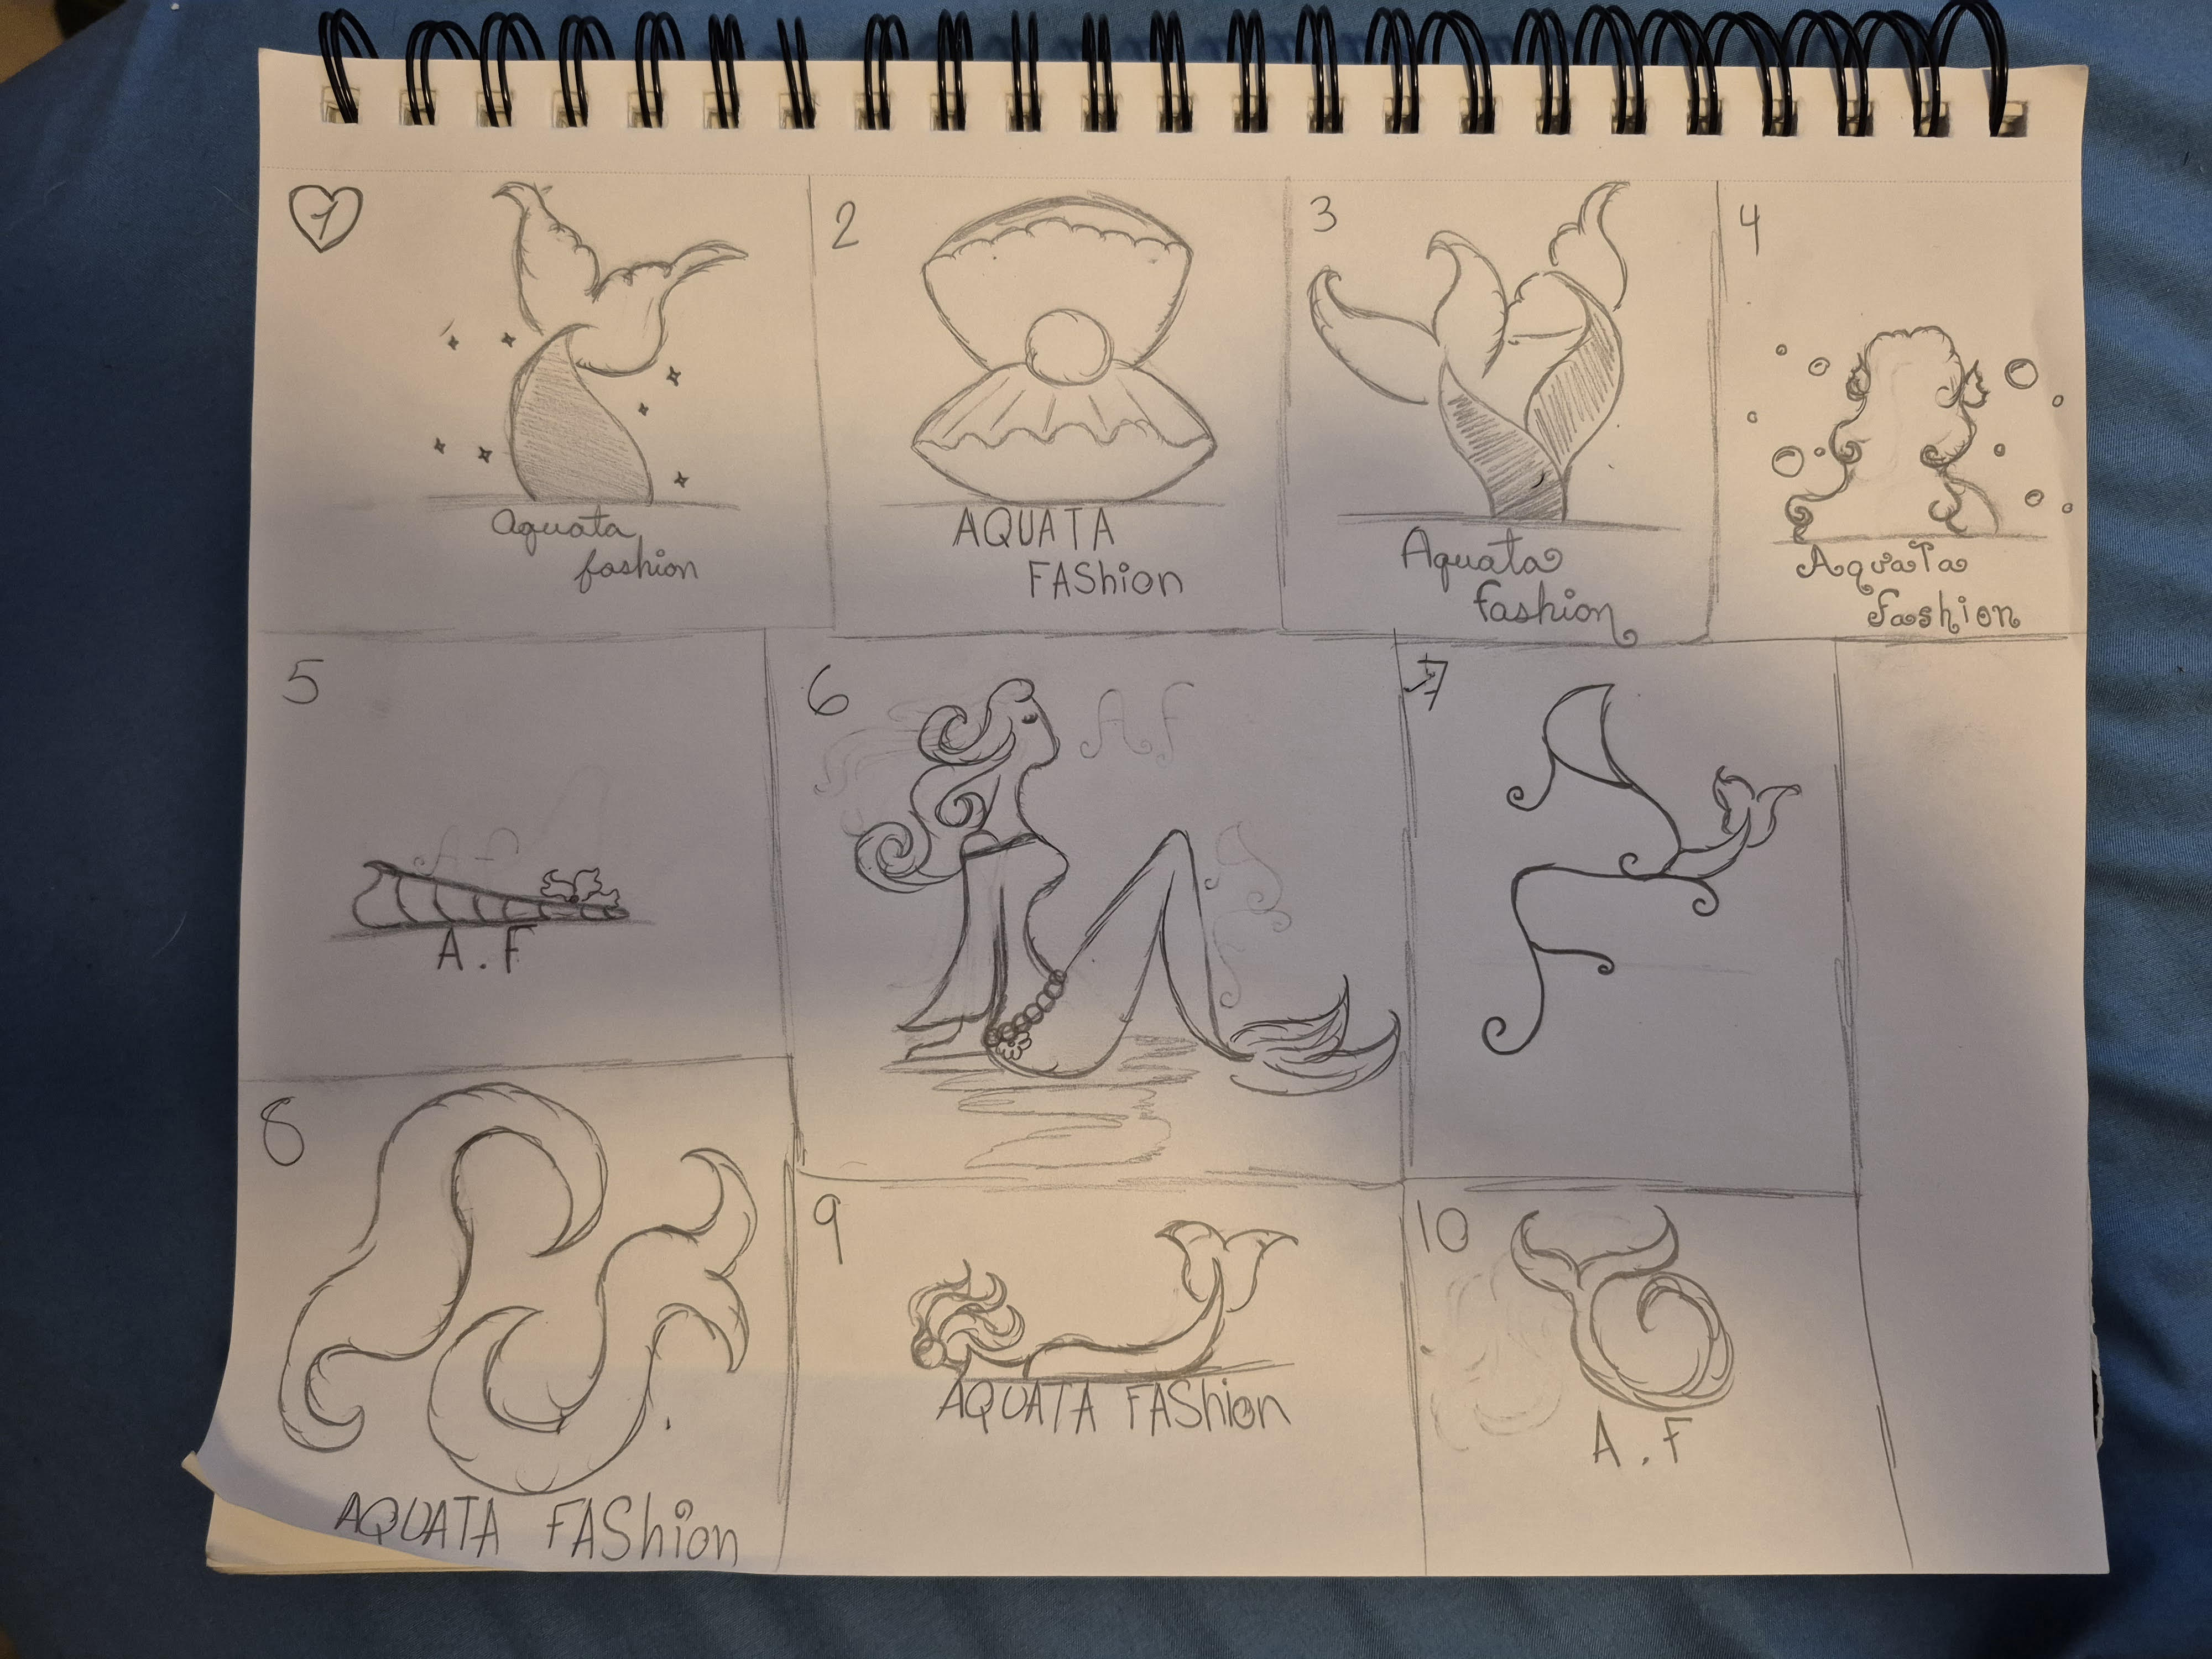 1
Aquata
fashion
2
AQUATA
FAShion
3
Aquata
fashion
4
AquaTa
fashion
5
A F
A.F
6
A F
A
F
7
8
AQUATA FAShion
9
AQUATA FAShion
10
A.F